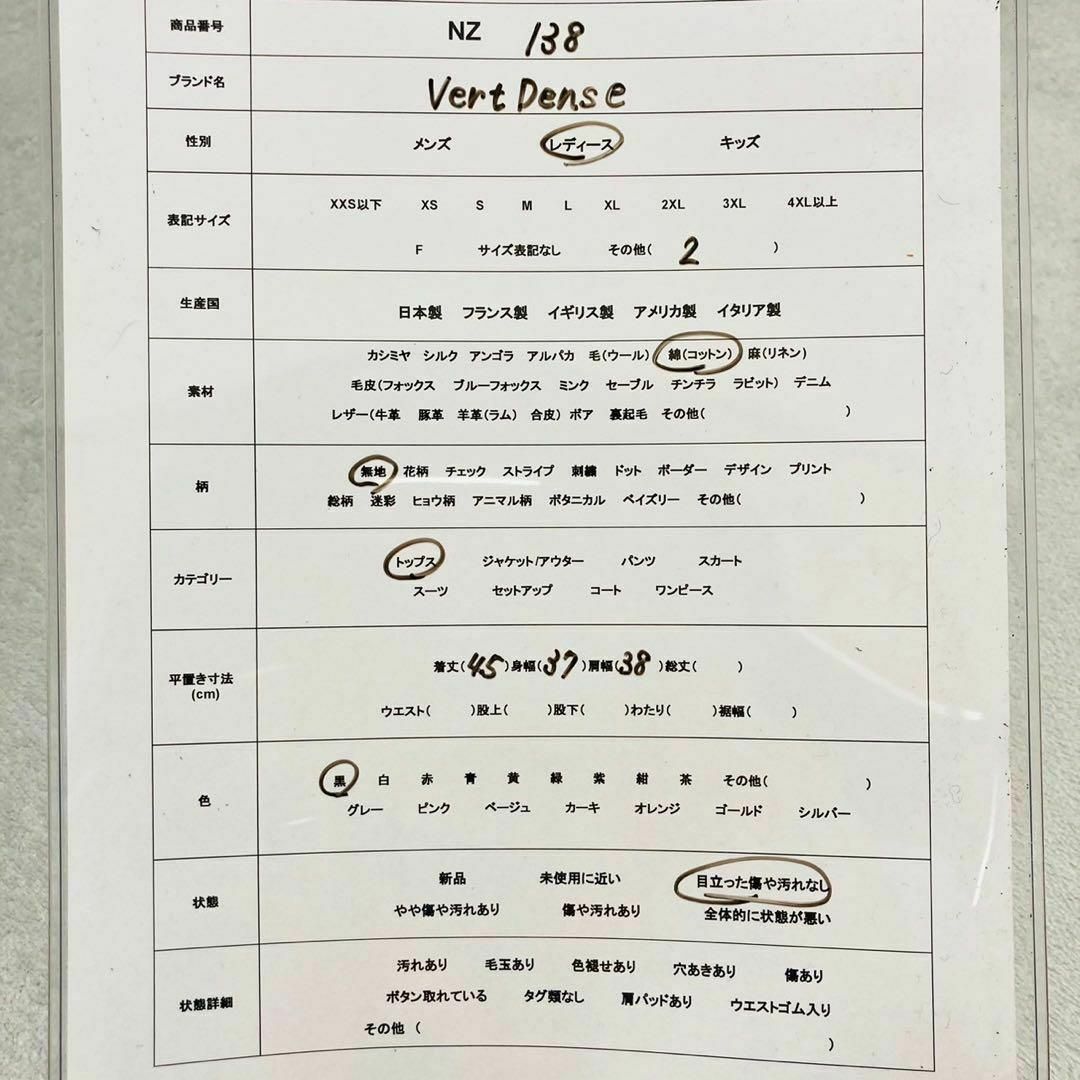 商品番号 NZ 138
ブランド名 Vert Dense
性別 メンズ レディース キッズ
表記サイズ
XXS以下 XS S M L XL 2XL 3XL 4XL以上
F サイズ表記なし その他( 2 )
生産国 日本製 フランス製 イギリス製 アメリカ製 イタリア製
素材
カシミヤ シルク アンゴラ アルパカ 毛(ウール) 綿(コットン) 麻(リネン)
毛皮(フォックス ブルーフォックス ミンク セーブル チンチラ ラビット) デニム
レザー(牛革 豚革 羊革(ラム) 合皮) ボア 裏起毛 その他( )
柄
無地 花柄 チェック ストライプ 刺繍 ドット ボーダー デザイン プリント
総柄 迷彩 ヒョウ柄 アニマル柄 ボタニカル ペイズリー その他( )
カテゴリー
トップス ジャケット/アウター パンツ スカート
スーツ セットアップ コート ワンピース
平置き寸法
(cm)
着丈( 45 )身幅( 37 )肩幅( 38 )総丈( )
ウエスト( )股上( )股下( )わたり( )裾幅( )
色
黒 白 赤 青 黄 緑 紫 紺 茶 その他( )
グレー ピンク ベージュ カーキ オレンジ ゴールド シルバー
状態
新品 未使用に近い 目立った傷や汚れなし
やや傷や汚れあり 傷や汚れあり 全体的に状態が悪い
状態詳細
汚れあり 毛玉あり 色褪せあり 穴あきあり 傷あり
ボタン取れている タグ類なし 肩パッドあり ウエストゴム入り
その他 ( )